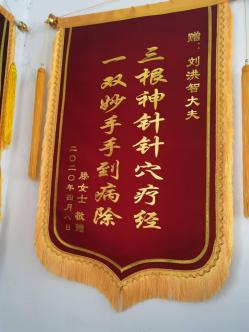 赠：刘洪智大夫
三根神针针穴疗经
一双妙手手到病除
滕女士 敬赠
二〇二〇年四月八日